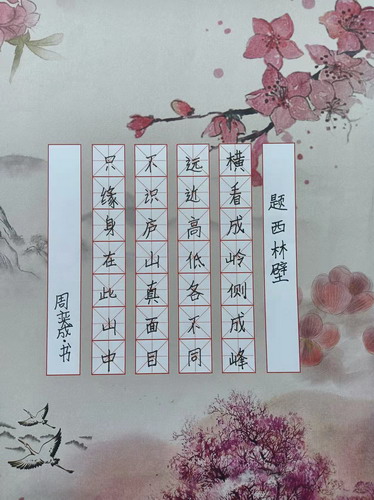 题西林壁
横看成岭侧成峰
远近高低各不同
不识庐山真面目
只缘身在此山中
周奕成·书